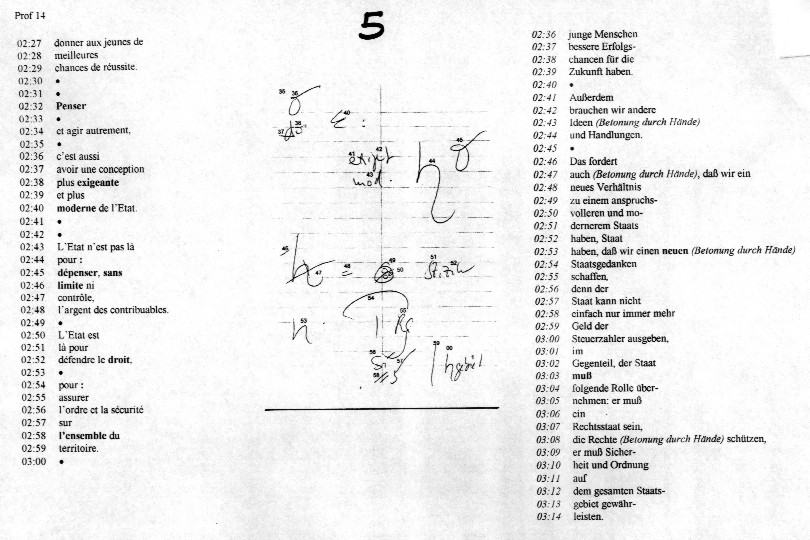 Prof 14
5
02:27 donner aux jeunes de
02:28 meilleures
02:29 chances de réussite.
02:30 •
02:31 •
02:32 Penser
02:33 •
02:34 et agir autrement,
02:35 •
02:36 c'est aussi
02:37 avoir une conception
02:38 plus exigeante
02:39 et plus
02:40 moderne de l'Etat.
02:41 •
02:42 •
02:43 L'Etat n'est pas là
02:44 pour :
02:45 dépenser, sans
02:46 limite ni
02:47 contrôle,
02:48 l'argent des contribuables.
02:49 •
02:50 L'Etat est
02:51 là pour
02:52 défendre le droit,
02:53 •
02:54 pour :
02:55 assurer
02:56 l'ordre et la sécurité
02:57 sur
02:58 l'ensemble du
02:59 territoire.
03:00 •
35 36
40
37 38
41 42
43
mod.
44
45
46
47
48
=
49
50
51
52
53
54
55
56
57
58
59
00
02:36 junge Menschen
02:37 bessere Erfolgs-
02:38 chancen für die
02:39 Zukunft haben.
02:40 •
02:41 Außerdem
02:42 brauchen wir andere
02:43 Ideen (Betonung durch Hände)
02:44 und Handlungen.
02:45 •
02:46 Das fordert
02:47 auch (Betonung durch Hände), daß wir ein
02:48 neues Verhältnis
02:49 zu einem anspruchs-
02:50 volleren und mo-
02:51 dernerem Staats
02:52 haben, Staat
02:53 haben, daß wir einen neuen (Betonung durch Hände)
02:54 Staatsgedanken
02:55 schaffen,
02:56 denn der
02:57 Staat kann nicht
02:58 einfach nur immer mehr
02:59 Geld der
03:00 Steuerzahler ausgeben,
03:01 im
03:02 Gegenteil, der Staat
03:03 muß
03:04 folgende Rolle über-
03:05 nehmen: er muß
03:06 ein
03:07 Rechtsstaat sein,
03:08 die Rechte (Betonung durch Hände) schützen,
03:09 er muß Sicher-
03:10 heit und Ordnung
03:11 auf
03:12 dem gesamten Staats-
03:13 gebiet gewähr-
03:14 leisten.